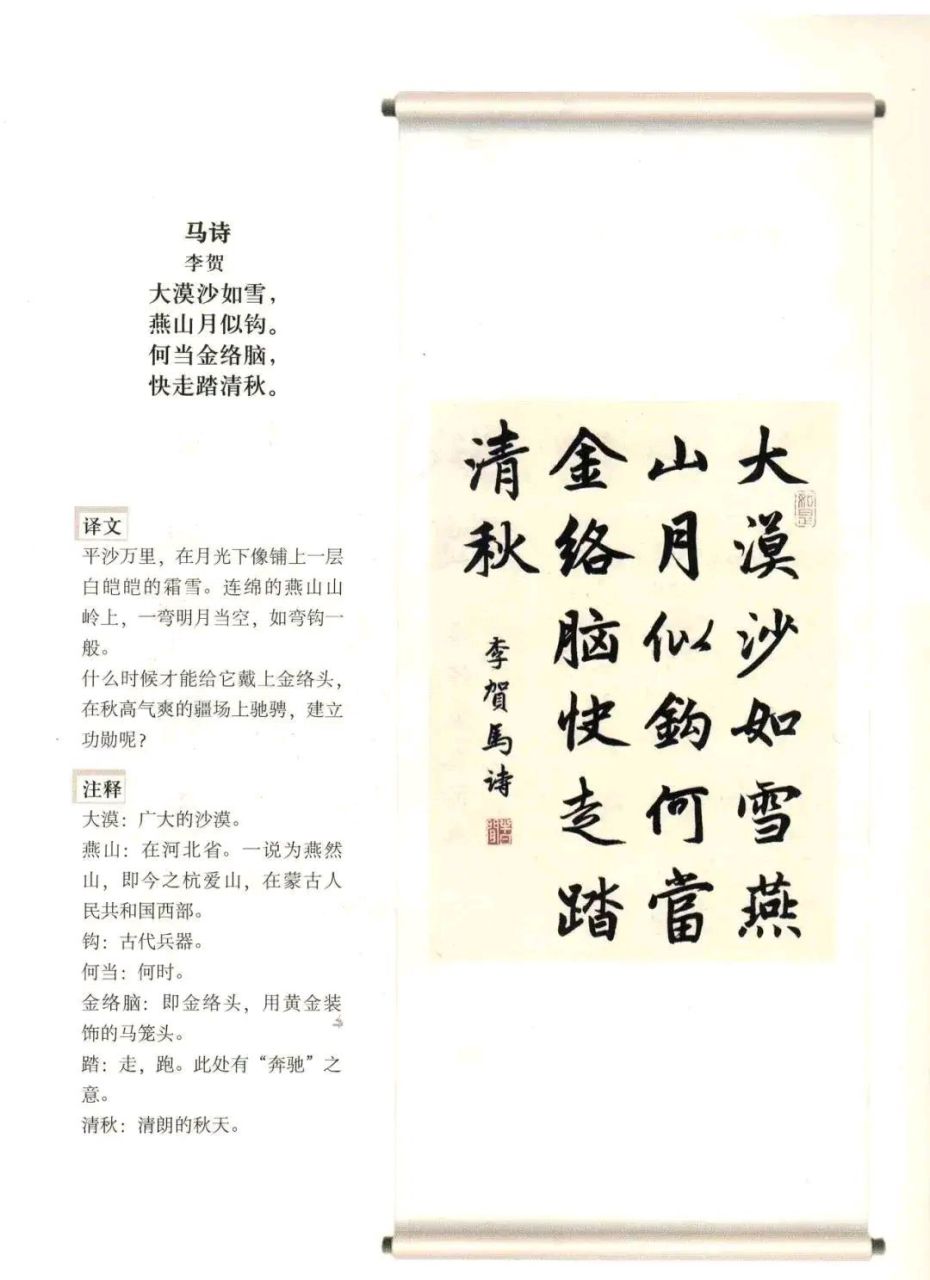 马诗
李贺
大漠沙如雪，
燕山月似钩。
何当金络脑，
快走踏清秋。
译文
平沙万里，在月光下像铺上一层
白皑皑的霜雪。连绵的燕山山
岭上，一弯明月当空，如弯钩一
般。
什么时候才能给它戴上金络头，
在秋高气爽的疆场上驰骋，建立
功勋呢？
注释
大漠：广大的沙漠。
燕山：在河北省。一说为燕然
山，即今之杭爱山，在蒙古人
民共和国西部。
钩：古代兵器。
何当：何时。
金络脑：即金络头，用黄金装
饰的马笼头。
踏：走，跑。此处有“奔驰”之
意。
清秋：清朗的秋天。
大漠沙如雪燕
山月似鈎何當
金络脑快走踏
清秋
李賀馬诗
如是